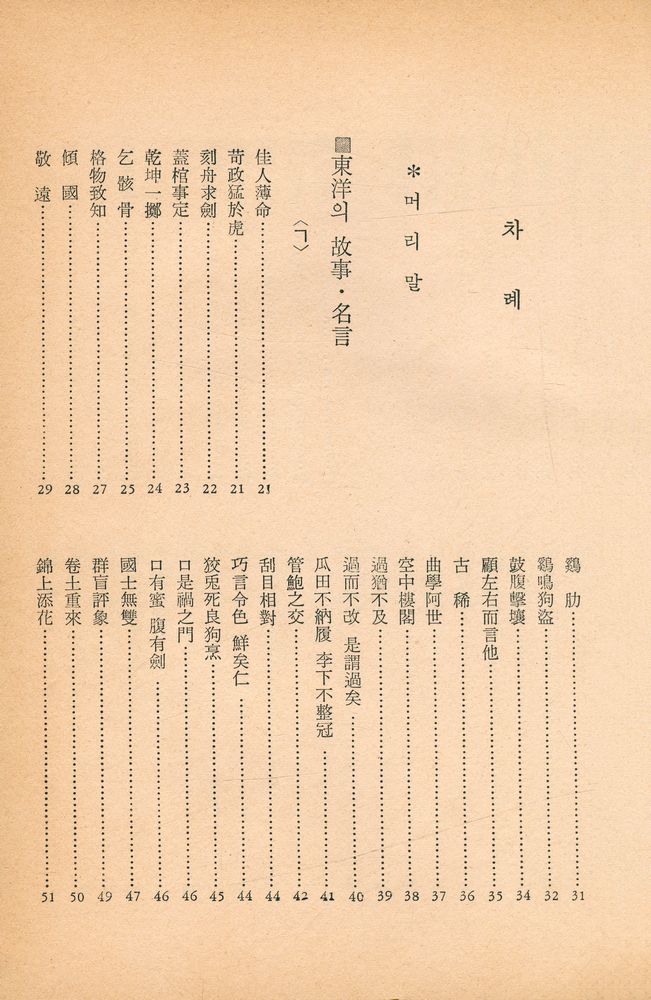 차례
*머리말
▩東洋의 故事・名言
〈ㄱ〉
佳人薄命 21
苛政猛於虎 21
刻舟求劍 22
蓋棺事定 23
乾坤一擲 24
乞骸骨 25
格物致知 27
傾國 28
敬遠 29
鷄肋 31
鷄鳴狗盜 32
鼓腹擊壤 34
顧左右而言他 35
古稀 36
曲學阿世 37
空中樓閣 38
過猶不及 39
過而不改 是謂過矣 40
瓜田不納履 李下不整冠 41
管鮑之交 42
刮目相對 44
巧言令色 鮮矣仁 44
狡兎死良狗烹 45
口是禍之門 46
口有蜜 腹有劍 46
國士無雙 47
群盲評象 49
卷土重來 50
錦上添花 51